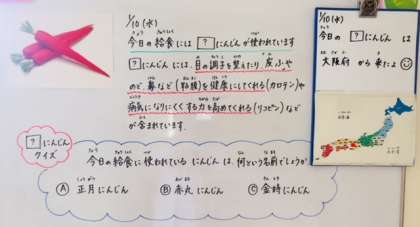 1/10 (水)
今日の給食には ? にんじんが使われています
? にんじんには、目の調子を整えたり、皮ふや
のど・鼻など(粘膜)を健康にしてくれる(カロテン)や
病気になりにくくする力を高めてくれる(リコピン)など
が含まれています。
? にんじん
クイズ
今日の給食に使われているにんじんは、何という名前でしょうか
Ⓐ 正月にんじん Ⓑ 赤丸にんじん Ⓒ 金時にんじん
1/10 (水)
今日の にんじん は
大阪府 から来たよ